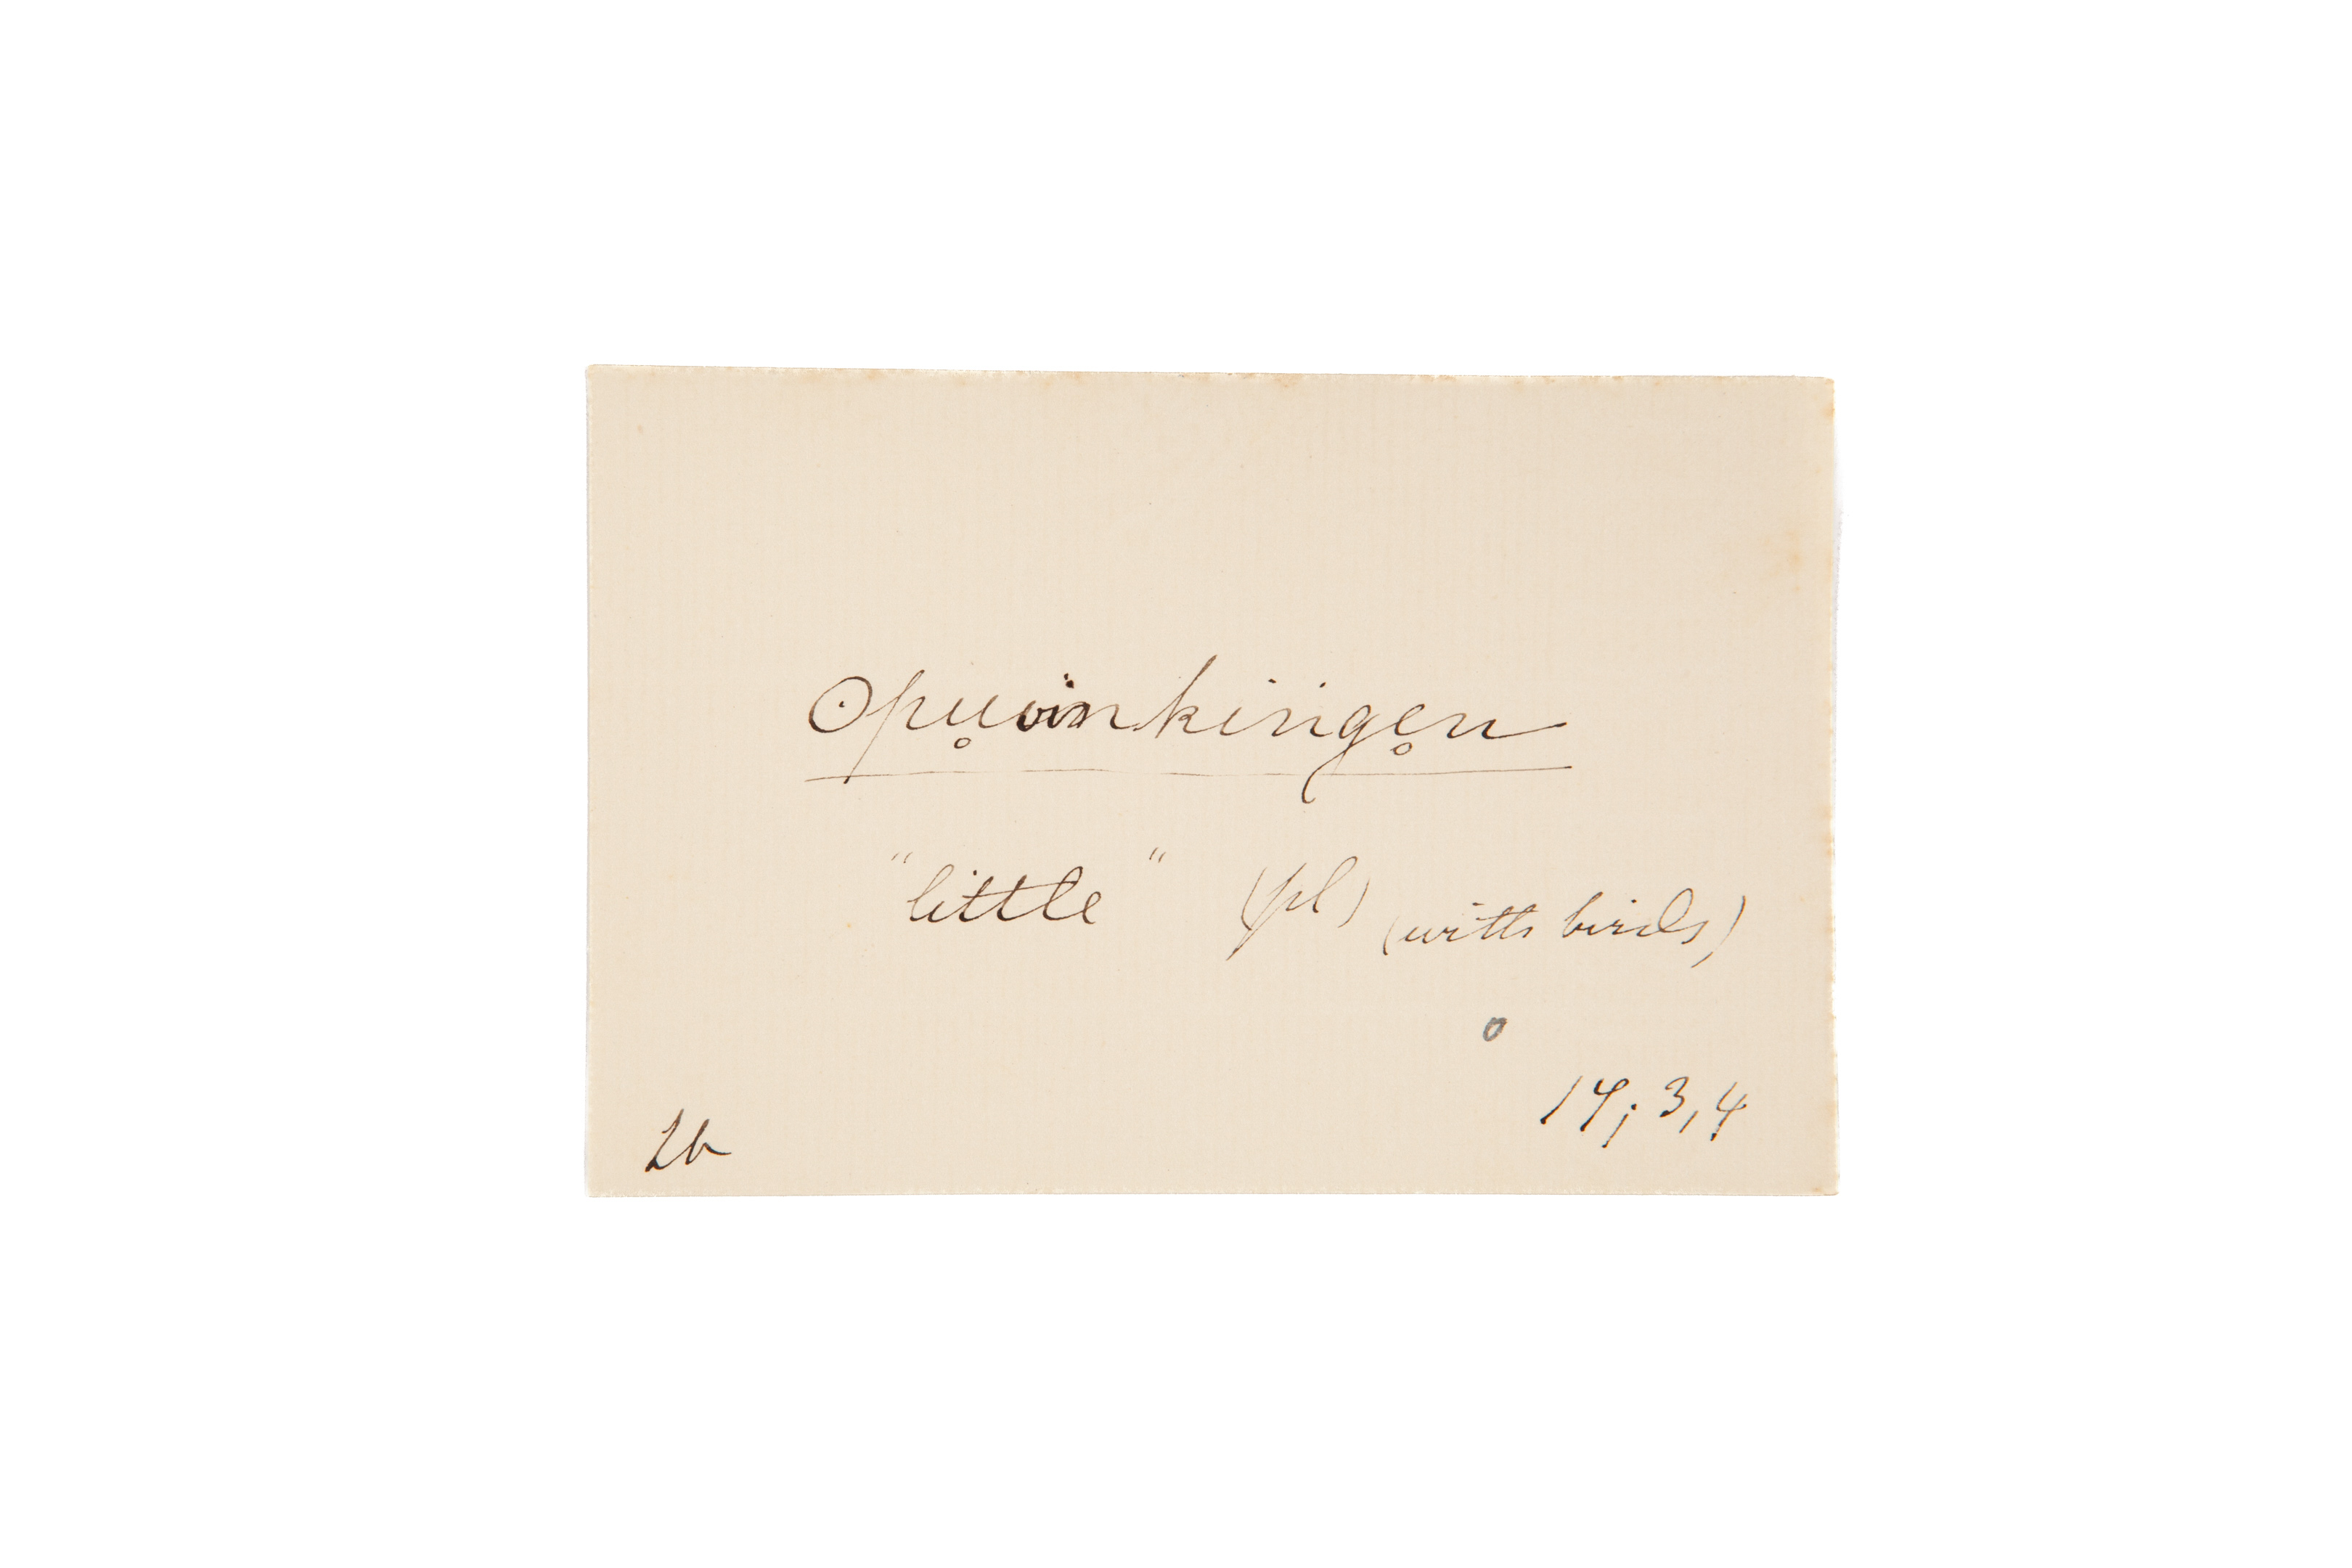 Opu̥vinkinge̥n
"little" (pl) (with birds)
o
14; 3, 4
16